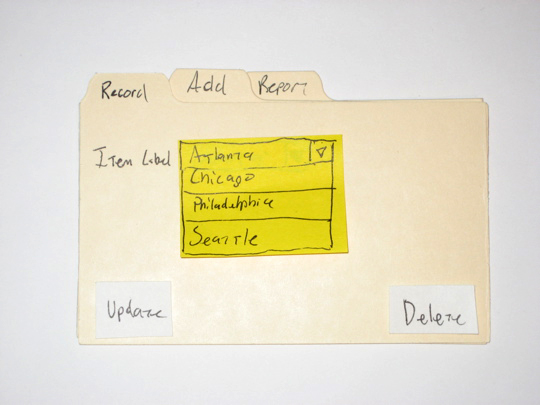 Record Add Report
Item Label
Atlanta
Chicago
Philadelphia
Seattle
Update Delete